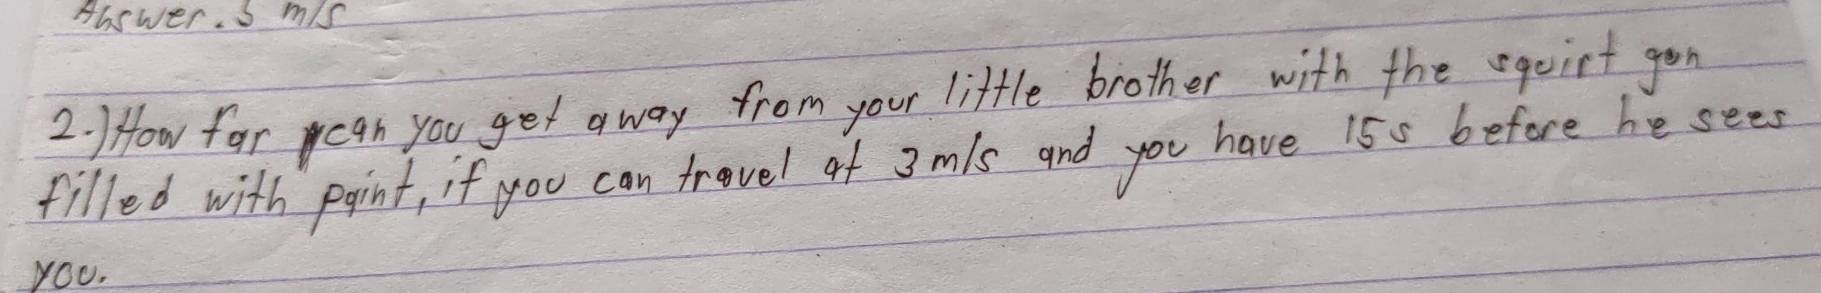 Answer. 5 m/s
2.) How far can you get away from your little brother with the squirt gun
filled with paint, if you can travel at 3 m/s and you have 15s before he sees
you.